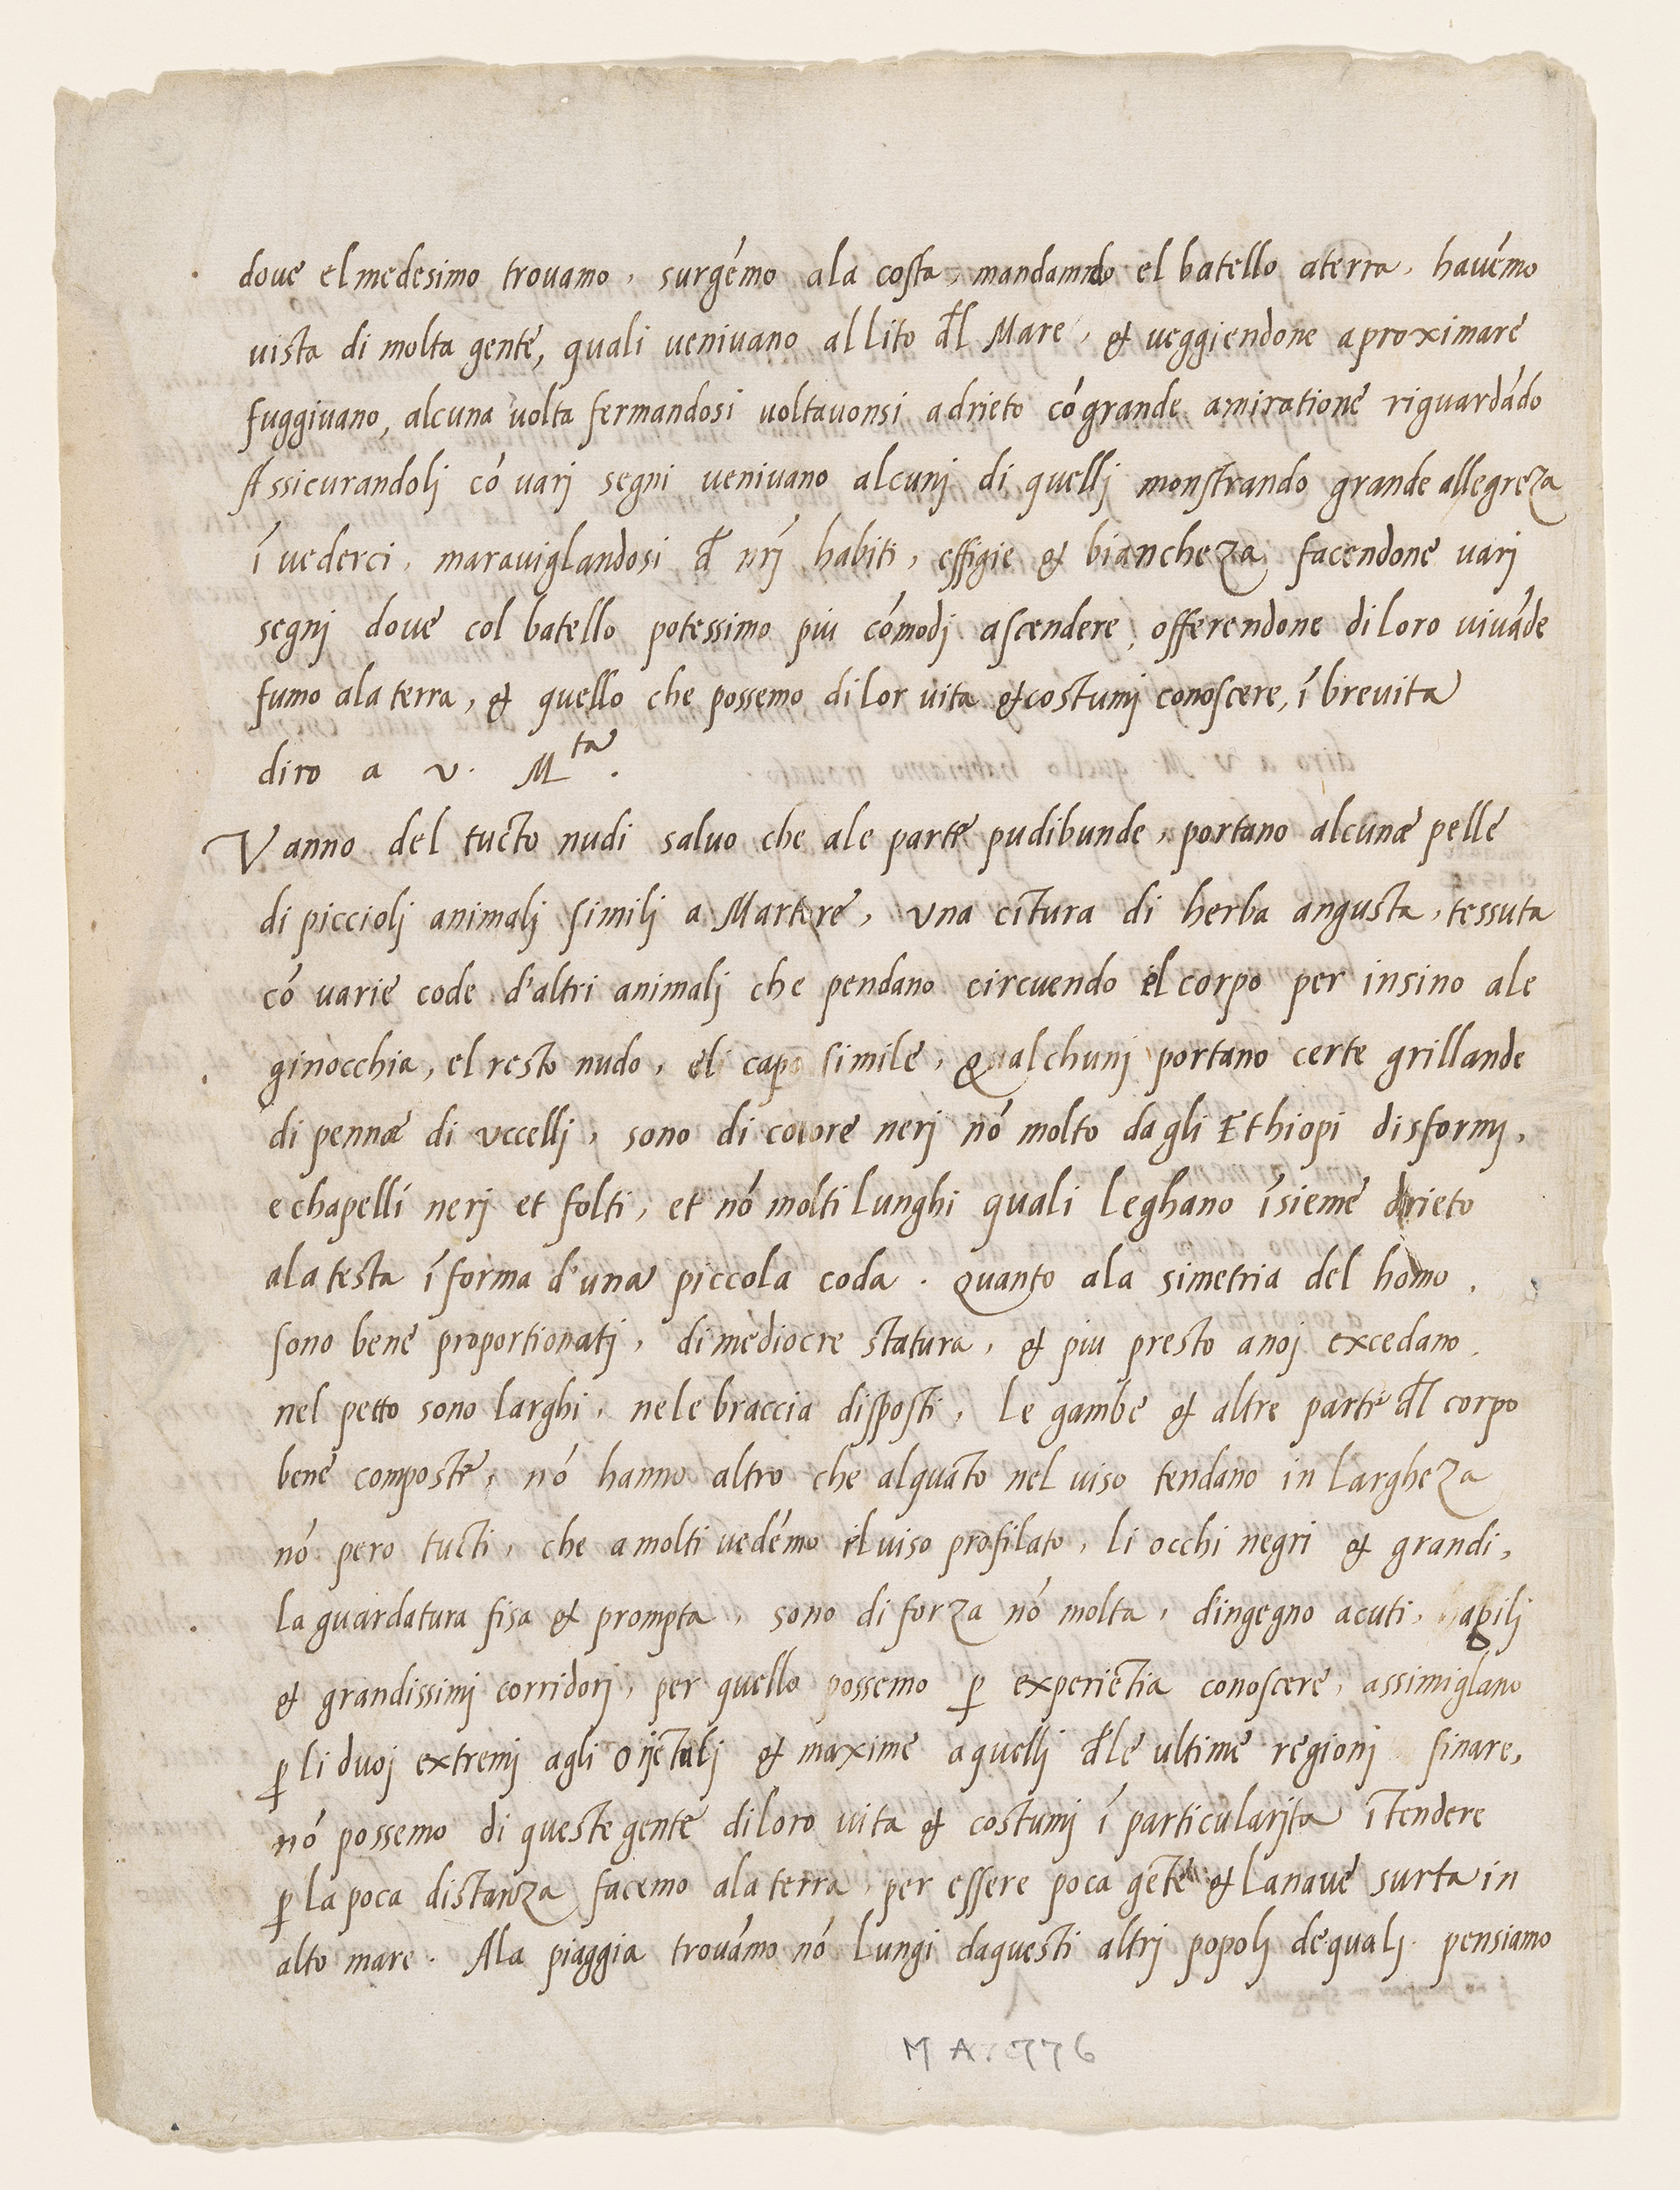 doue el medesimo trouamo, surgémo ala costa, mandanndo el batello aterra, hauémo
uista di molta gente, quali ueniuano al lito d̄l Mare, & ueggiendone aproximare
fuggiuano, alcuna uolta fermandosi uoltauonsi adrieto có grande amiratione riguardádo
Assicurandolj có varj segni veniuano alcunj di quellj monstrando grande allegreza
ī uederci, marauiglandosi d̄ nr̄j habiti, effigie & biancheza facendone varj
segnj doue col batello potessimo piu cómodj ascendere, offerendone di loro viuáde
fumo ala terra, & quello che possemo di lor uita & costumj conoscere, ī breuita
diro a v. M^ta.
Vanno del tucto nudi saluo che ale parte pudibunde, portano alcunæ pelle
di picciolj animalj similj a Martore, vna cītura di herba angusta, tessuta
có uarie code d'altri animalj che pendano circuendo il corpo per insino ale
ginocchia, el resto nudo, eli capo simile, Qualchunj portano certe grillande
di pennæ di vccellj, sono di colore nerj nó molto dagli Ethiopi disformj,
e chapelli nerj et folti, et nó molti lunghi quali leghano īsieme drieto
ala testa ī forma d'una piccola coda. Quanto ala simetria del homo,
sono bene proportionatj, di mediocre statura, & piu presto a noj excedano.
nel petto sono larghi, nele braccia disposti, le gambe & altre parte d̄l corpo
bene composte, nó hanno altro che alquáto nel uiso tendano in largheza
nó pero tucti, che a molti vedémo il uiso profilato, li occhi negri & grandi,
la guardatura fisa & prompta, sono di forza nó molta, d'ingegno acuti, agilj
& grandissimj corridorj, per quello possemo p̱ experiētia conoscere, assimiglano
p̱ li duoj extremj agli Orjētalj & maxime a quellj d̄le ultime regionj sinare,
nó possemo di queste gente di loro uita & costumj ī particularjta ītendere
p̱ la poca distanza facemo ala terra, per essere poca gēte & la naue surta in
alto mare. Ala piaggia trouámo nó lungi da questi altrj popolj de qualj pensiamo
MA. 776